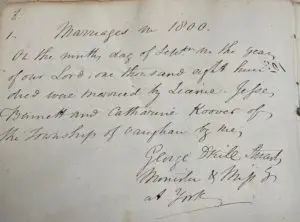 1. Marriages in 1800.
On the ninth day of Septr in the year
of our Lord, one thousand eight hun
dred was married by Licence. Jesse
Bennett and Catharine Koover of
the Township of Vaughan by me,
George Stuart
Minister &
at York